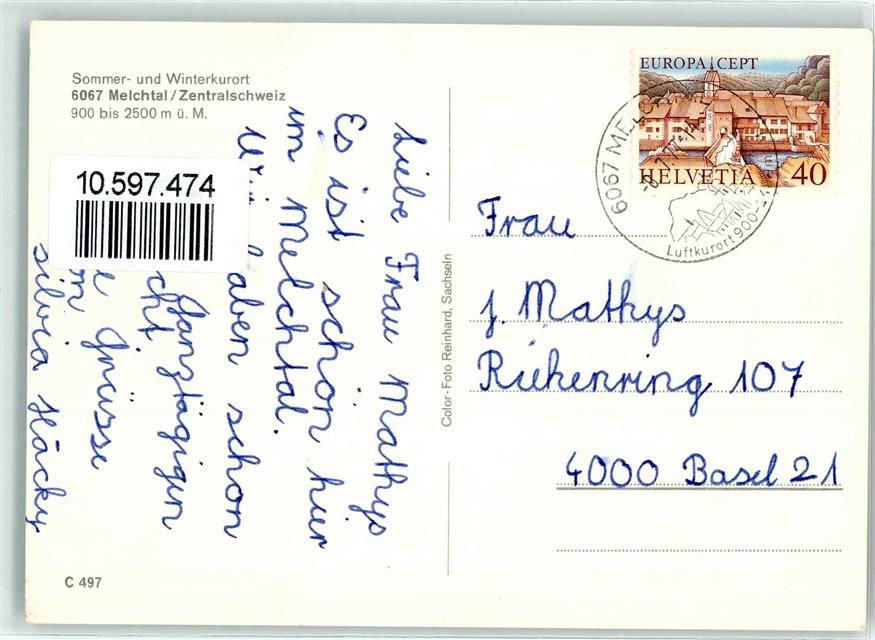 Sommer- und Winterkurort
6067 Melchtal/Zentralschweiz
900 bis 2500 m ü. M.
10.597.474
Liebe Frau Mathys
Es ist schön hier
im Melchtal.
haben schon
Ganztägigen
Grüsse
silvia Häcky
C 497
Color-Foto Reinhard, Sachseln
EUROPA CEPT
HELVETIA 40
6067
Luftkurort 900-
Frau
J. Mathys
Riehenring 107
4000 Basel 21